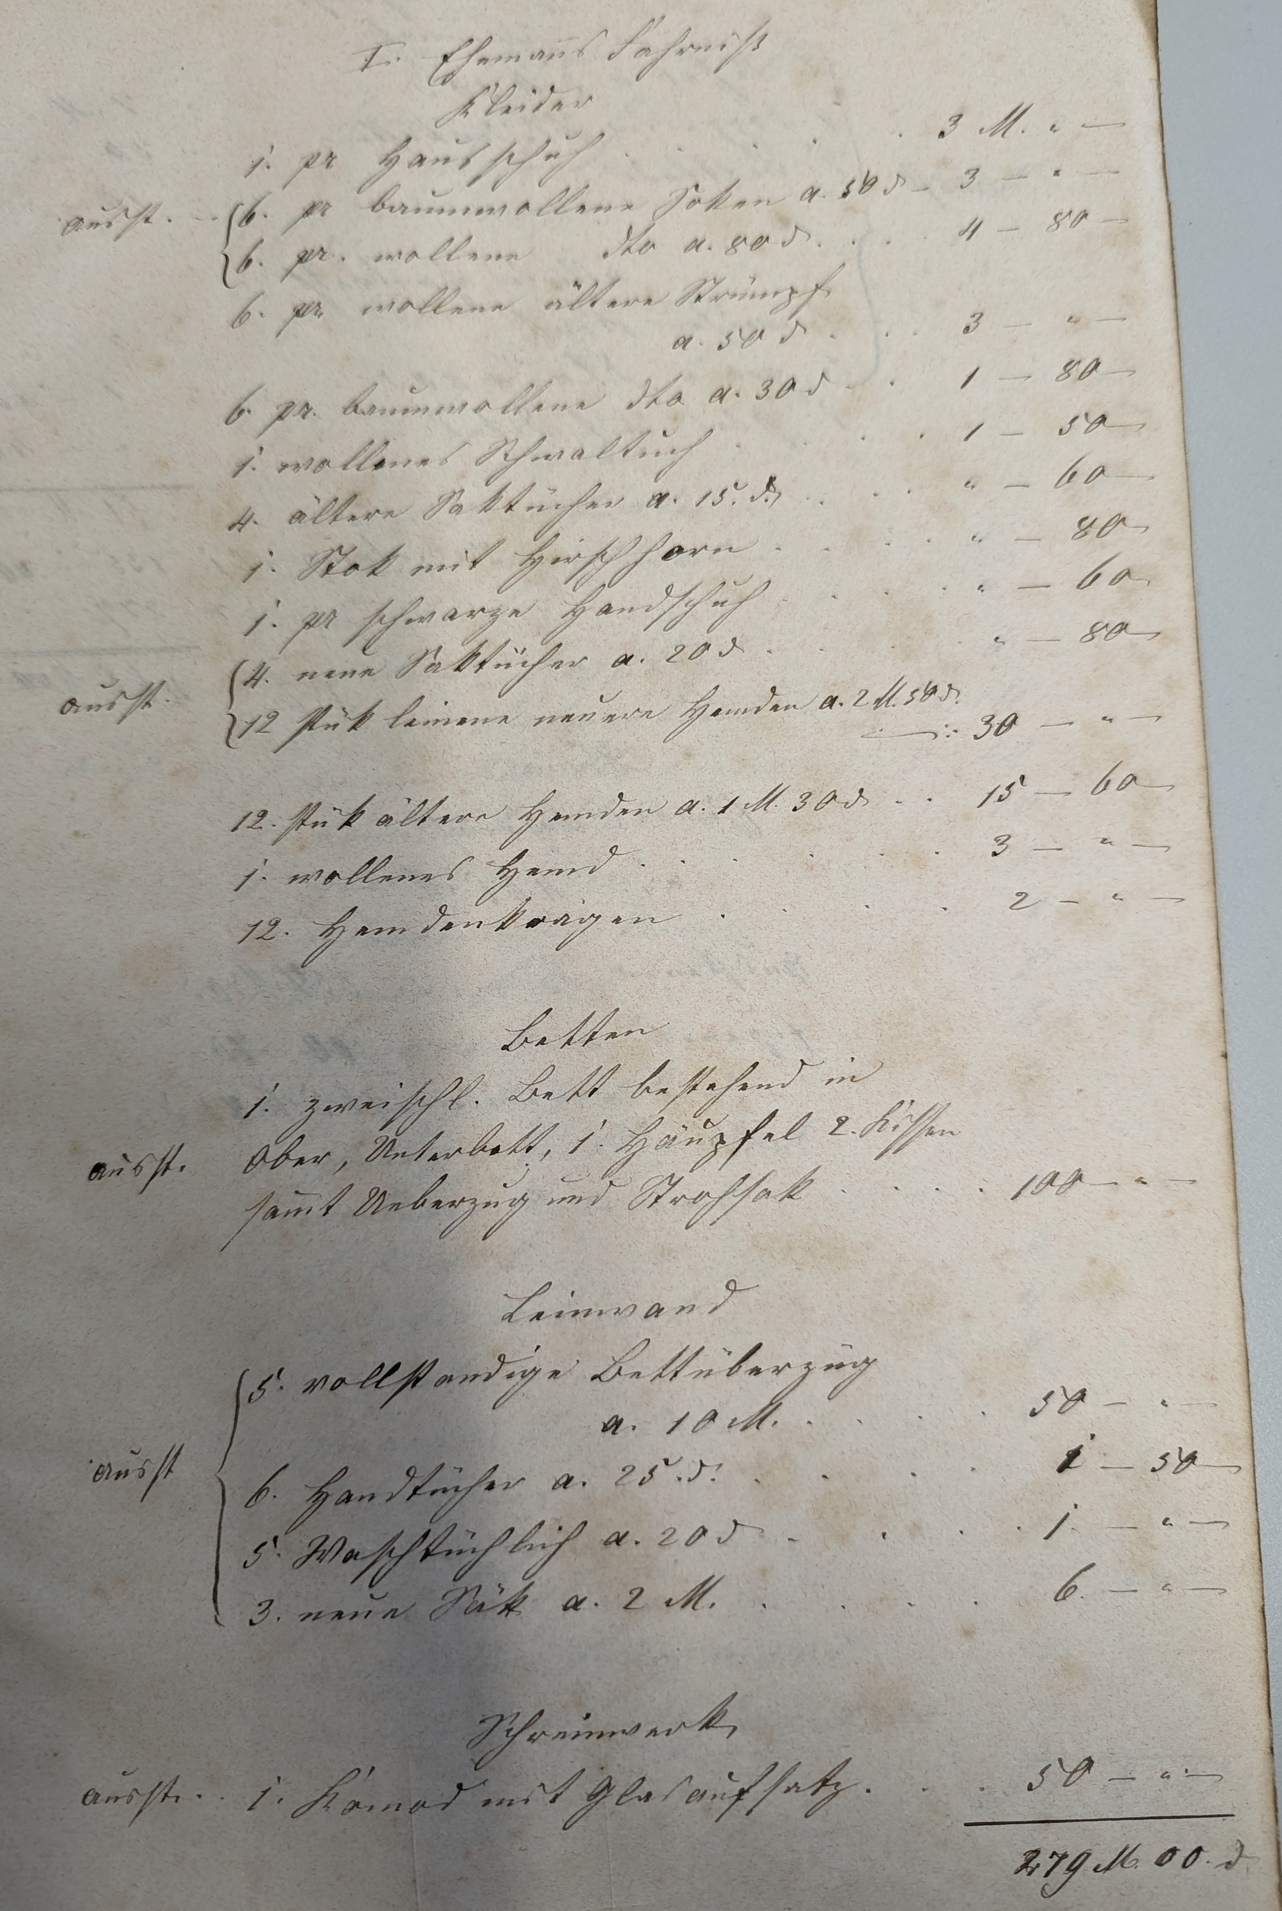 I. Ehemanns Fahrniß
Kleider
1. pr Hausschuh . . . . 3 M. " —
ausst. — 6. pr baumwollene Soken a. 50 d — 3 — " —
6. pr. wollene dto a. 80 d. . . . 4 — 80 —
6. pr. wollene ältere Strümpf
a. 50 d . . . 3 — " —
6. pr. baumwollene dto a. 30 d . . 1 — 80 —
1. wollenes Schwaltuch . . . . 1 — 50 —
4. ältere Saktücher a. 15. d. . . . " — 60 —
1. Stok mit Hirschhorn . . . . " — 80 —
1. pr schwarze Handschuh . . . . " — 60
4. neue Saktücher a. 20 d . . . " — 80 —
ausst. 12 stük leinene neuere Hemden a. 2 M. 50 d.
30 — " —
12. stük ältere Hemden a. 1 M. 30 d . . 15 — 60 —
1. wollenes Hemd . . . . . 3 — " —
12. Hemdenkrägen . . . . 2 — " —
Betten
1. zweischl. Bett bestehend in
ausst. Ober, Unterbett, 1. Häupfel 2. Kissen
samt Ueberzug und Strohsak . . . . 100 — " —
Leinwand
5. vollstandige Bettüberzüg
a. 10 M. . . . . 50 — " —
ausst 6. Handtücher a. 25. d. . . . . 1 — 50 —
5. Waschtüchlich a. 20 d — . . . 1. — " —
3. neue Säk a. 2 M. . . . . 6. — " —
Schreinwerk
ausst. . . 1. Komod mit Glasaufsatz . . . 50 — " —
279 M. 00. d